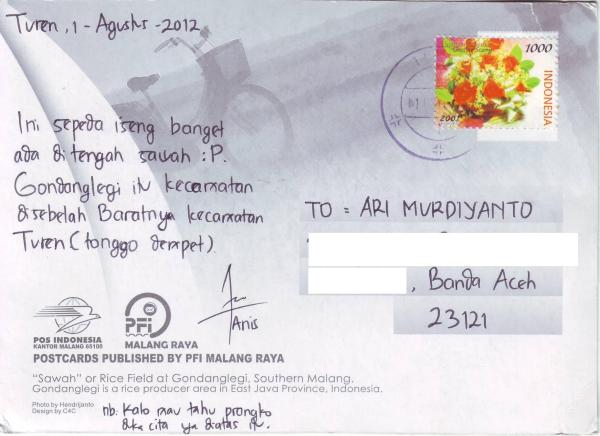 Turen, 1 - Agustus - 2012
1000
INDONESIA
2001
Ini sepeda iseng banget
ada ditengah sawah :P.
Gondanglegi itu kecamatan
disebelah Baratnya kecamatan
Turen (tonggo dempet).
Anis
TO = ARI MURDIYANTO
, Banda Aceh
23121
POS INDONESIA
KANTOR MALANG 65100
PFI
MALANG RAYA
POSTCARDS PUBLISHED BY PFI MALANG RAYA
"Sawah" or Rice Field at Gondanglegi, Southern Malang.
Gondanglegi is a rice producer area in East Java Province, Indonesia.
Photo by Hendrijanto
Design by C4C
nb: Kalo mau tahu prangko
duka cita ya diatas itu.